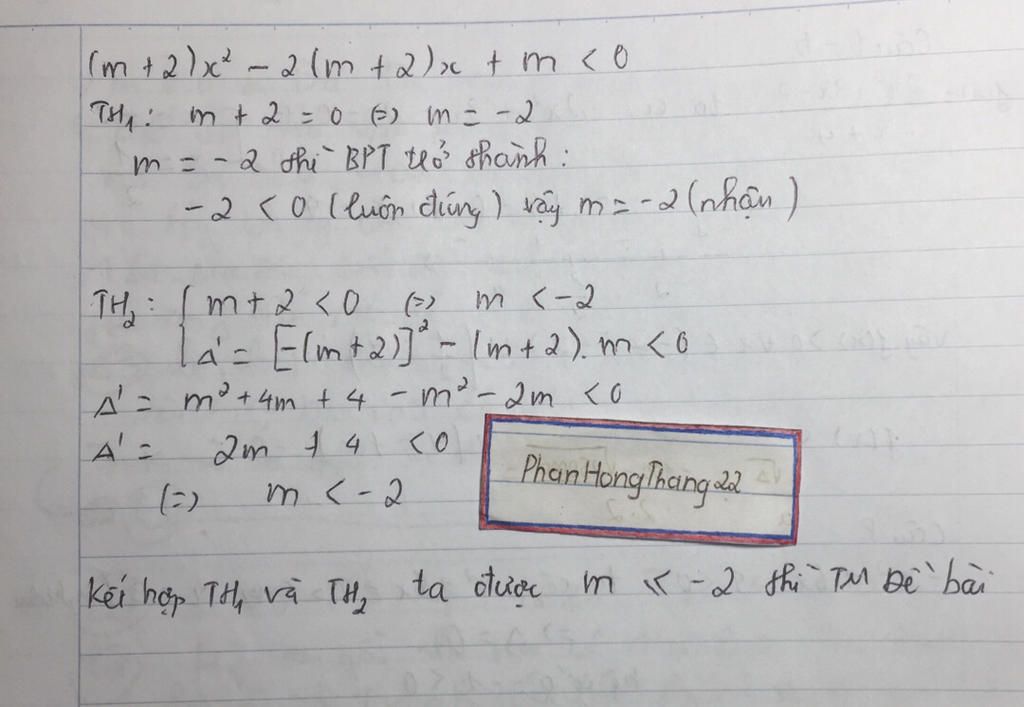 (m + 2)x² - 2(m + 2)x + m < 0
TH₁: m + 2 = 0 (=) m = -2
m = -2 thì BPT trở thành:
-2 < 0 (luôn đúng) vậy m = -2 (nhận)
TH₂: { m + 2 < 0 (=) m < -2
Δ' = [-(m + 2)]² - (m + 2).m < 0
Δ' = m² + 4m + 4 - m² - 2m < 0
Δ' = 2m + 4 < 0
(=) m < -2
PhanHongThang22
kết hợp TH₁ và TH₂ ta được m ≤ -2 thì TM Đề bài